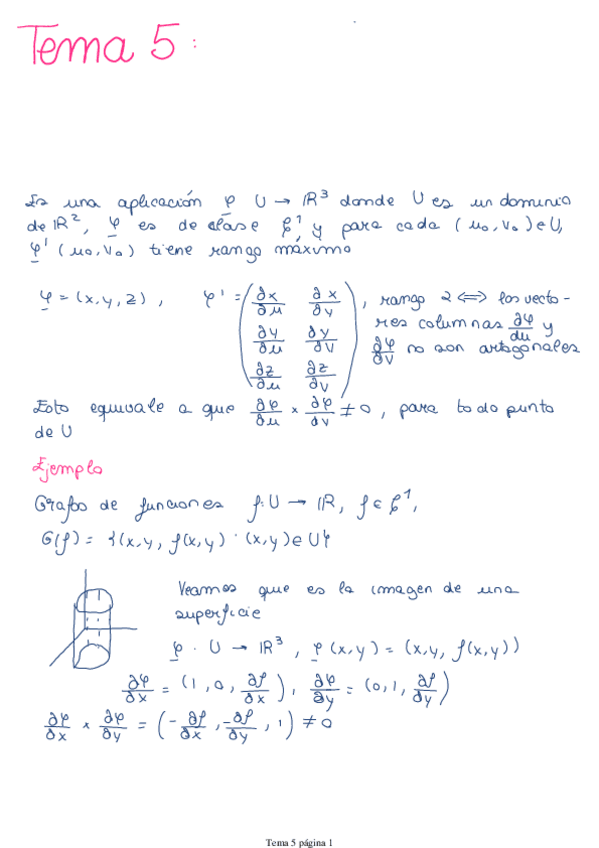 Tema 5:
Es una aplicación φ U → R³ donde U es un dominio
de R², φ es de clase C¹ y para cada (u₀, v₀) ∈ U,
φ'(u₀, v₀) tiene rango máximo
φ = (x, y, z), φ' = (∂x/∂u ∂x/∂v ; ∂y/∂u ∂y/∂v ; ∂z/∂u ∂z/∂v), rango 2 ⟺ los vecto-
res columnas ∂φ/du y
∂φ/∂v no son ortogonales
Esto equivale a que ∂φ/∂u × ∂φ/∂v ≠ 0, para todo punto
de U
Ejemplo
Grafos de funciones f: U → R, f ∈ C¹,
G(f) = {(x, y, f(x,y) · (x,y) ∈ U}
Veamos que es la imagen de una
superficie
φ · U → R³, φ(x,y) = (x, y, f(x,y))
∂φ/∂x = (1, 0, ∂f/∂x), ∂φ/∂y = (0, 1, ∂f/∂y)
∂φ/∂x × ∂φ/∂y = (-∂f/∂x, -∂f/∂y, 1) ≠ 0
Tema 5 página 1